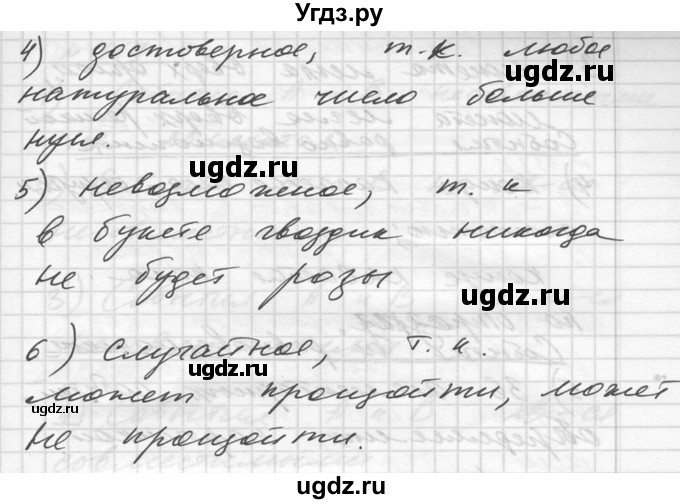 Угдз.ру
4) достоверное, т.к. любое
натуральное число больше
нуля.
ugdz.ru
5) невозможное, т. к
в букете гвоздик никогда
не будет розы
ugdz.ru
6) Случайное, т. к.
может произойти, может
ugdz.ru
не произойти.
ugdz.ru
Угдз.ру